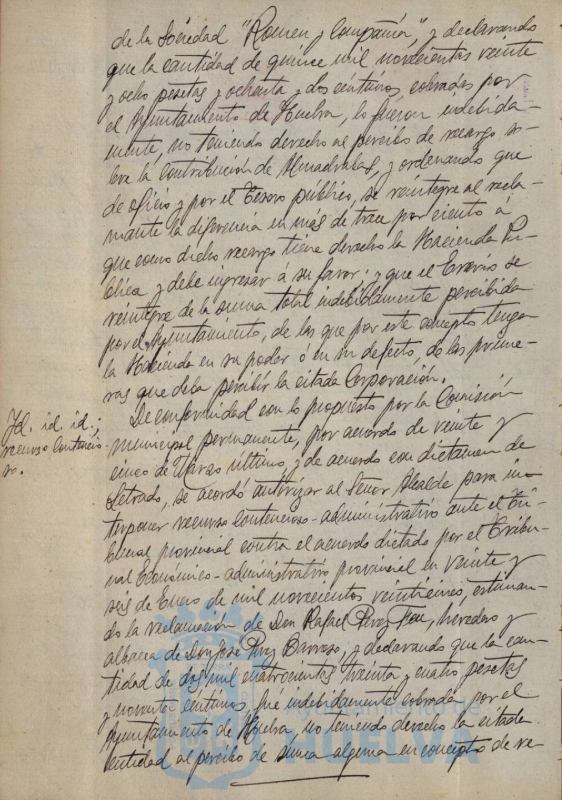 de la Sociedad "Romeu y Compañía", y declarando
que la cantidad de quince mil novecientas veinte
y ocho pesetas y ochenta y dos céntimos cobradas por
el Ayuntamiento de Huelva, lo fueron indebida-
mente, no teniendo derecho al percibo de recargo so-
bre la contribución de Almadrabas, y ordenando que
de oficio y por el Tesoro público, se reintegre al recla-
mante la diferencia en más de trece por ciento á
que como dicho recargo tiene derecho la Hacienda Pú-
blica y debe ingresar á su favor; y que el Erario se
reintegre de la suma total indebidamente percibida
por el Ayuntamiento, de las que por este concepto tenga
la Hacienda en su poder ó en su defecto, de las prime-
ras que deba percibir la citada Corporación.
Id. id. id.;
recurso contencio-
so.
De conformidad con lo propuesto por la Comisión
municipal permanente, por acuerdo de veinte y
cinco de Marzo último, y de acuerdo con dictamen de
Letrado, se acordó autorizar al Señor Alcalde para in-
terponer recurso contencioso-administrativo ante el Tri-
bunal provincial contra el acuerdo dictado por el Tribu-
nal Económico-administrativo provincial en veinte y
seis de Enero de mil novecientos veinticinco, estiman-
do la reclamación de Don Rafael Pérez Feu, heredero y
albacea de Don José Pérez Barroso, y declarando que la can-
tidad de dos mil cuatrocientas treinta y cuatro pesetas
y noventa céntimos, fué indebidamente cobrada por el
Ayuntamiento de Huelva, no teniendo derecho la citada
entidad al percibo de suma alguna en concepto de re-
Ayuntamiento de
HUELVA